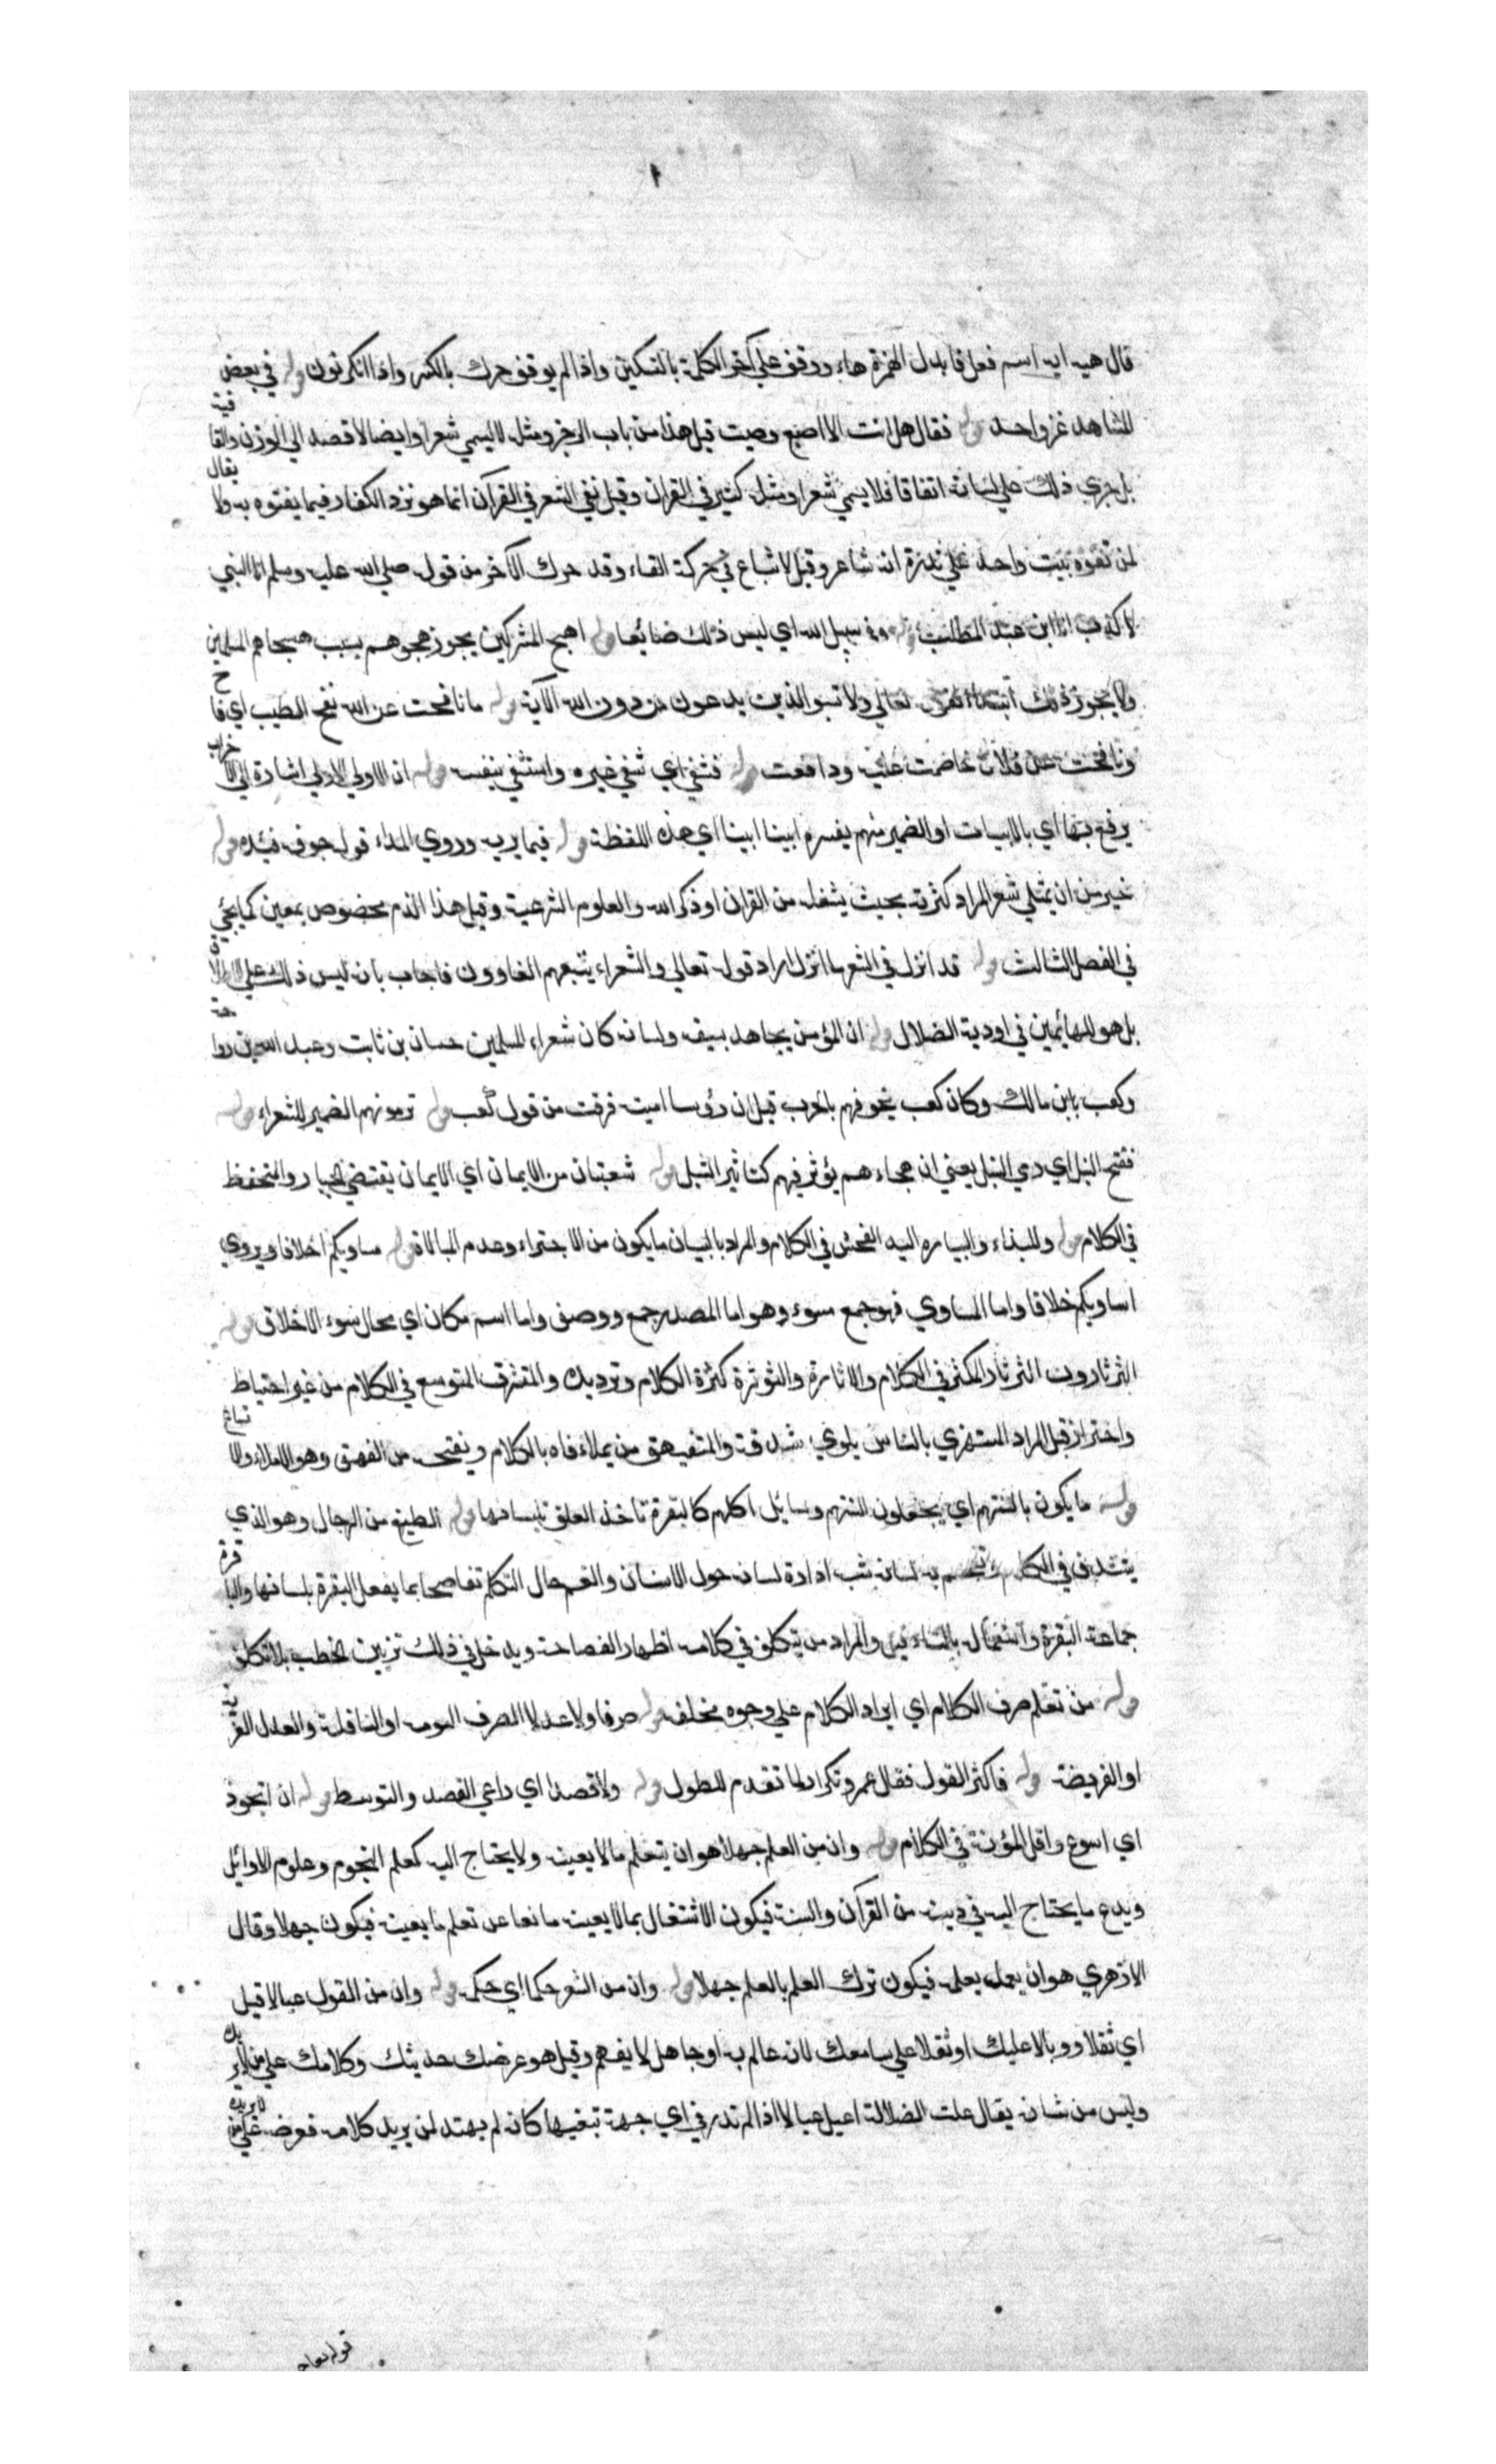 ١
قال هيه ايه اسم فعل فابدل الهمزة هاء ووقف على آخر الكلمة بالتسكين واذا لم يوقف حرك بالكسر واذا انكر نون قوله في بعض
المشاهد غزو احد قوله فقال هل انت الا اصبع دميت قيل هذا من باب الرجز ومثله لا يسمي شعرا وايضا لا قصد الي الوزن والقافية
بل جري ذلك علي لسانه اتفاقا فلا يسمي شعرا ومثله كثير في القران وقيل نفي الشعر في القرآن انما هو نزد الكفار فيما يفتوه به ولا يقال
لمن تفوه ببيت واحد علي ندرة انه شاعر وقيل لا شباع في حركة التاء وقد حرك الآخر من قوله صلي الله عليه وسلم انا النبي
لا كذب انا ابن عبد المطلب قوله وفي سبيل الله اي ليس ذلك ضائعا قوله اهج المشركين يجوز هجوهم بسبب هجاهم المسلمين
ولا يجوز ذلك ابتداء لقوله تعالي ولا تسبوا الذين يدعون من دون الله الآية قوله ما نافحت عن الله نفح الطيب اي فاح
ونافحت عن فلان خاصمت عليه ودافعت قوله فشفي اي شفي غيره واشتفي بنفسه قوله ان الاولي الاولي اشارة الي الاحزاب
يرفع بها اي بالابيات او الضمير مبهم يفسره ابينا ابينا اي هذه اللفظة قوله فيما يريه وروي المداء قوله جوف فيئده قوله
خير من ان يمتلي شعر المراد كثرته بحيث يشغله من القران او ذكر الله والعلوم الشرعية وقيل هذا الذم مخصوص بمعين كما يجئ
في الفصل الثالث قوله قد انزل في الشعر ما انزل اراد قوله تعالي والشعراء يتبعهم الغاوون فاجاب بان ليس ذلك علي الاطلاق
بل هو للهائمين في اودية الضلال قوله ان المؤمن يجاهد بسيفه ولسانه كان شعراء المسلمين حسان بن ثابت وعبد الله بن رواحة
وكعب بابن مالك وكان كعب يخوفهم بالحرب قيل ان دؤسا امنت فرقت من قول كعب قوله ترمونهم الضمير للشعراء قوله
نضح النبل اي رمي النبل يعني ان هجاءهم يؤثر فيهم كتاثير النبل قوله شعبتان من الايمان اي الايمان يقتضي الحياء والتحفظ
في الكلام قوله والبذاء والبيان اليه الفحش في الكلام والمراد بالبيان ما يكون من الاجتراء وعدم المبالاة قوله مساويكم اخلاقا ويروي
اساويكم خلاقا واما المساوي فهو جمع سوء وهو اما المصدر جمع ووصف واما اسم مكان اي محال سوء الاخلاق قوله
الثرثارون الثرثار المكثر في الكلام والاثارة والثوثرة كثرة الكلام وترديده والمتشدق المتوسع في الكلام من غير احتياط
واحتراز قيل المراد المستهزي بالناس يلوي شدقه والمتفيهق من يملاء فاه بالكلام ويفتحه من الفهق وهو الامتلاء والاتساع
قوله ما يكون بالسنتهم اي يجعلون السنتهم وسايل اكلهم كالبقرة تاخذ العلق بلسانها قوله البليغ من الرجال وهو الذي
يتشدق في الكلام به لسانه شبه ادارة لسانه حول الاسنان والفم حال التكلم تفاصحا بما يفعل البقرة بلسانها والباقرة
جماعة البقرة واستعماله بالتاء قليل والمراد من يتكلف في كلامه اظهار الفصاحة ويدخل في ذلك تزيين الخطب بلا تكلف
قوله من تعلم صرف الكلام اي ايراد الكلام علي وجوه مختلفه قوله صرفا ولا عدلا الصرف التوبه او النافلة والعدل الفدية
او الفريضة قوله فاكثر القول فقال عمرو تكرار لما تقدم للطول قوله ولو قصد اي راعي القصد والتوسط قوله ان اتجوز
اي اسرع واقل المؤنة في الكلام قوله وان من العلم جهلا هو ان يتعلم ما لا يعينه ولا يحتاج اليه كعلم النجوم وعلوم الاوائل
ويدع ما يحتاج اليه في دينه من القرآن والسنة فيكون الاشتغال بما لا يعينه مانعا عن تعلم ما يعينه فيكون جهلا وقال
الازهري هو ان يعمل بعلمه فيكون ترك العلم بالعلم جهلا قوله وان من الشعر حكما اي حكمه قوله وان من القول عيالا قيل
اي ثقلا ووبالا عليك او ثقلا علي سامعك لانه عالم به او جاهل لا يفهم وقيل هو عرضك حديثك وكلامك علي من لا يريك
وليس من شانه يقال علت الضلالة اعيل عيالا اذا لم تدر في اي جهة تبغيها كانه لم يهتد لمن يريد كلامه فعرضه علي من لا يريده